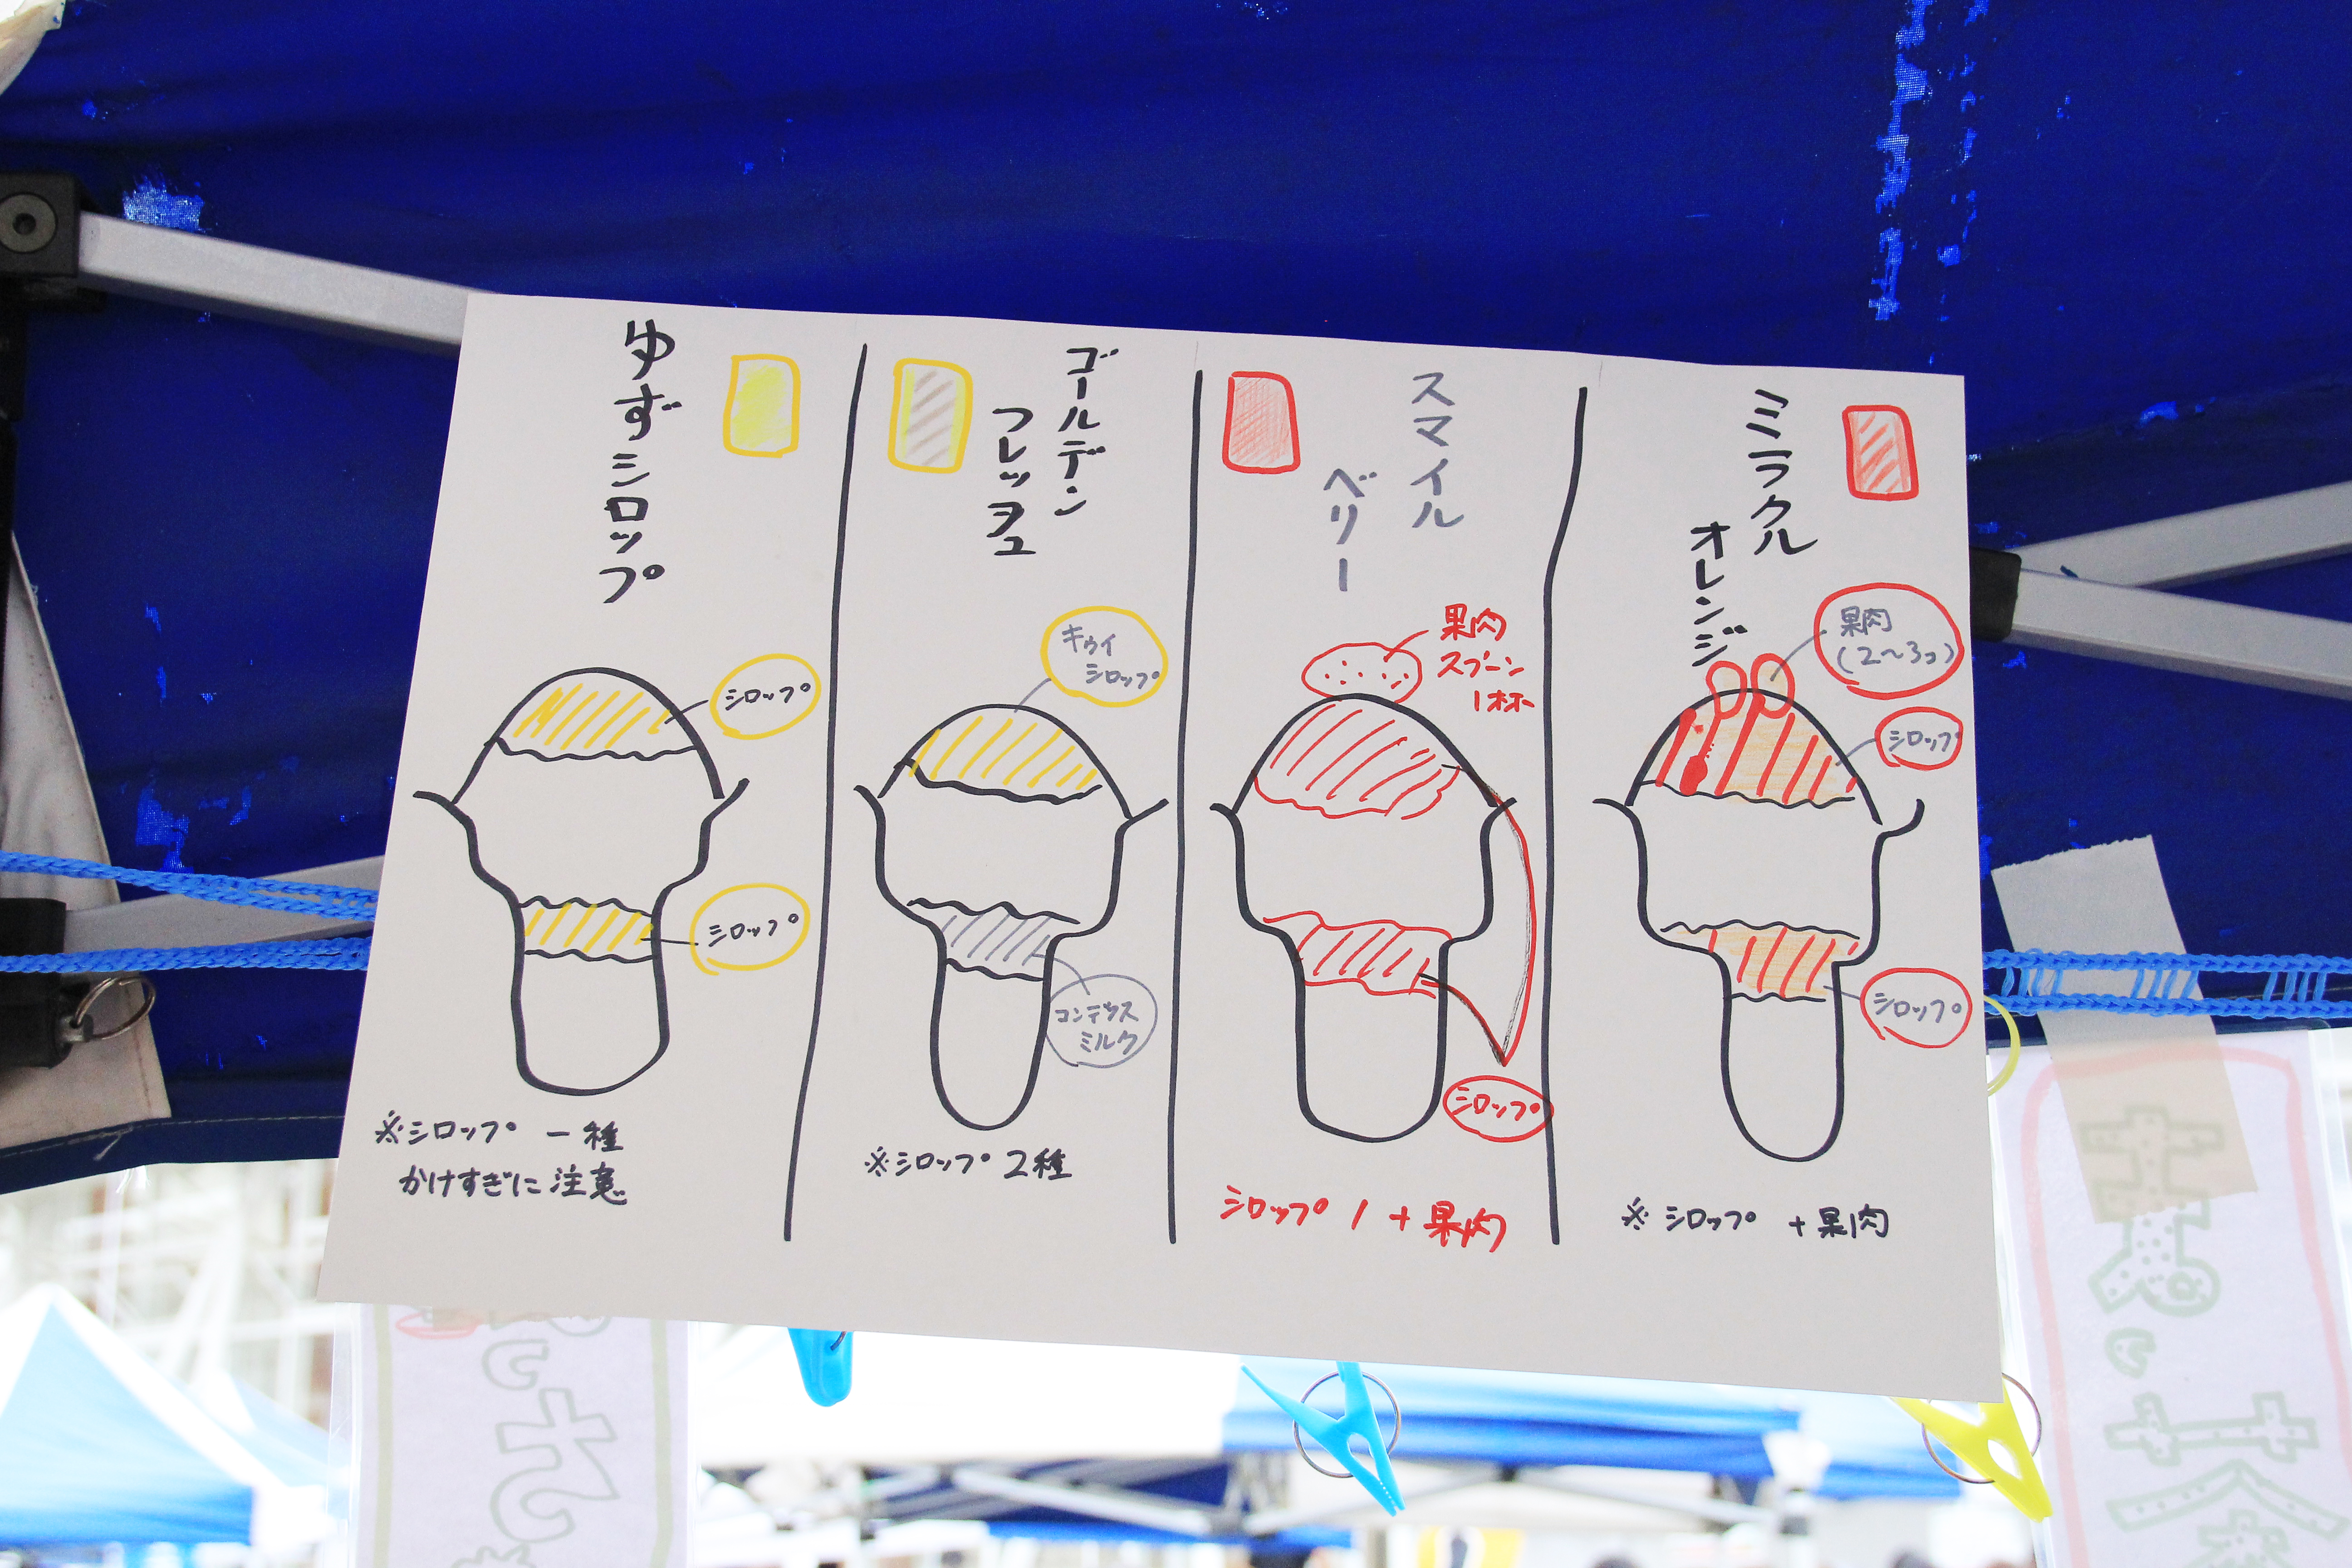 ゆずシロップ
シロップ
シロップ
※シロップ 一種
かけすぎに注意
ゴールデン
フレッシュ
キウイ
シロップ
コンデンス
ミルク
※シロップ 2種
スマイル
ベリー
果肉
スプーン
1杯
シロップ
シロップ 1 + 果肉
ミラクル
オレンジ
果肉
(2〜3コ)
シロップ
シロップ
※ シロップ + 果肉